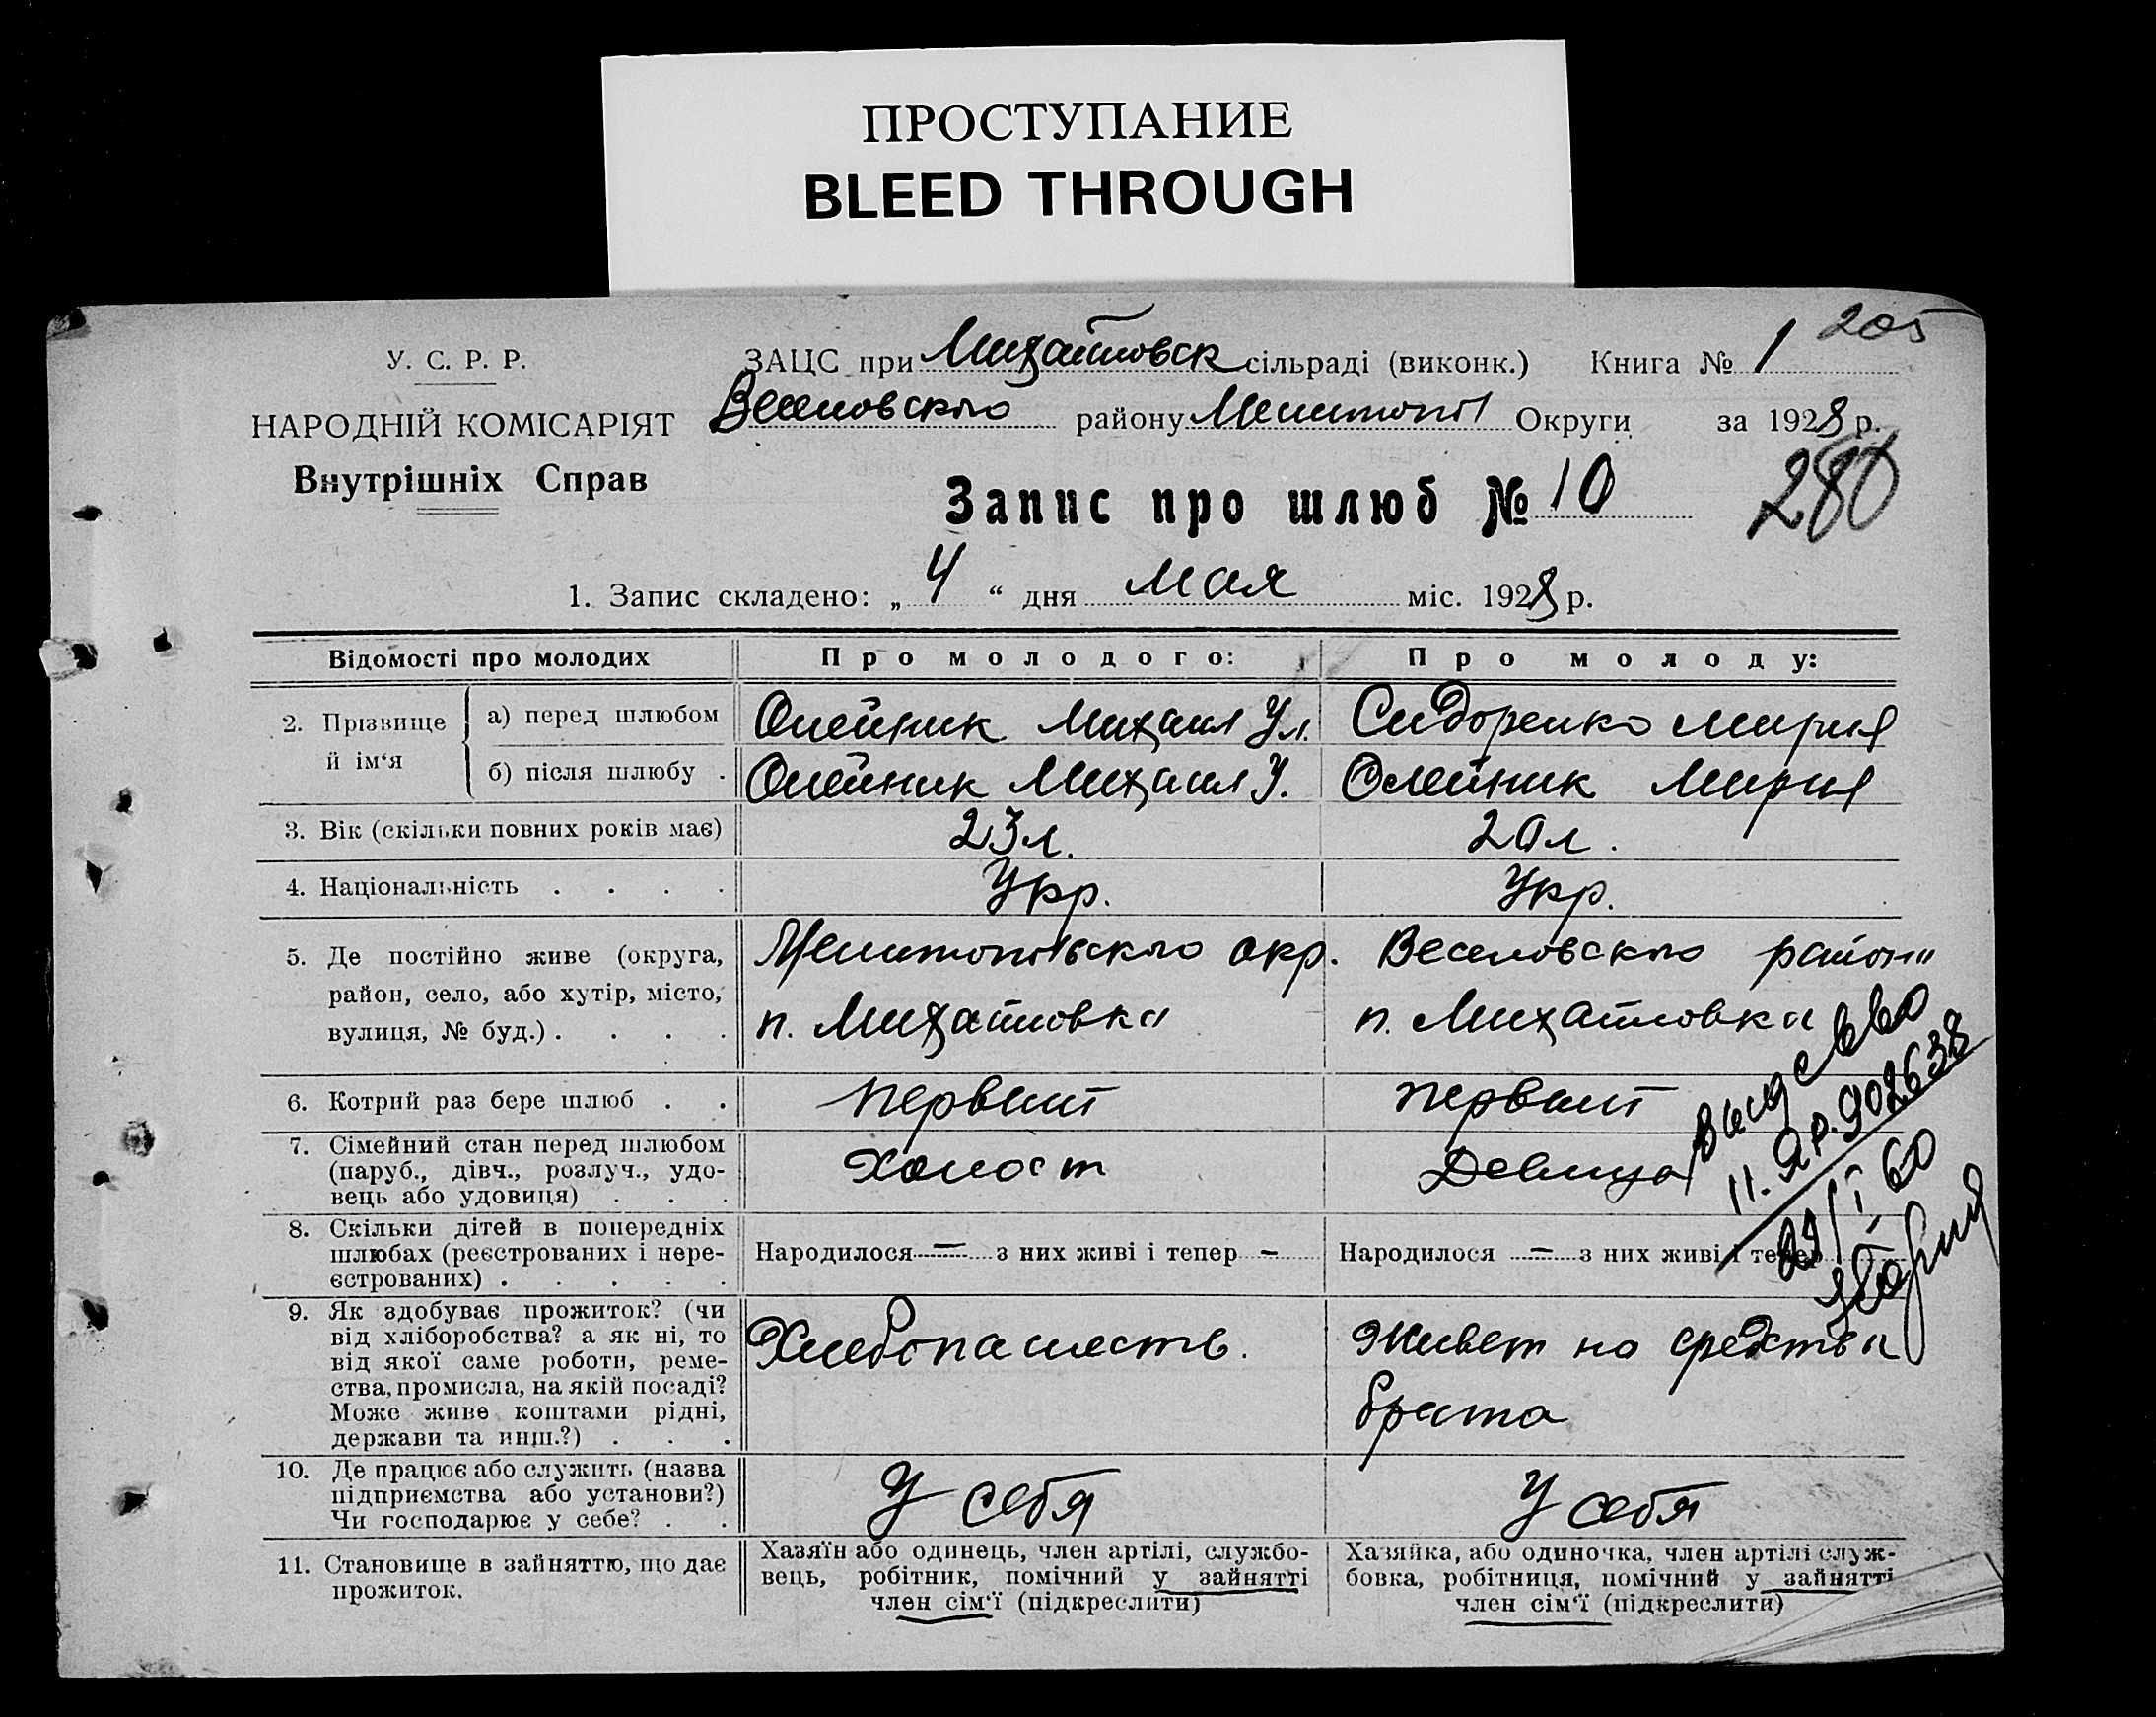 ПРОСТУПАНИЕ
BLEED THROUGH
205
У. С. Р. Р.
ЗАЦС при Михайловск сільраді (виконк.) Книга № 1
НАРОДНІЙ КОМІСАРІЯТ
Веселовского району Мелитопол Округи за 1928 р.
Внутрішніх Справ
280
Запис про шлюб № 10
1. Запис складено: „ 4 “ дня мая міс. 1928 р.
Відомості про молодих
Про молодого:
Про молоду:
2. Прізвище й ім‘я
а) перед шлюбом
Олейник Михаил Ул.
Сидоренко Мария
б) після шлюбу .
Олейник Михаил У.
Олейник Мария
3. Вік (скільки повних років має)
23 л.
20 л.
4. Національність . . . .
Укр.
Укр.
5. Де постійно живе (округа,
район, село, або хутір, місто,
вулиця, № буд.) . . . .
Мелитопольского окр.
п. Михайловка
Веселовского района
п. Михайловка
6. Котрий раз бере шлюб . .
первый
первый
7. Сімейний стан перед шлюбом
(паруб., дівч., розлуч., удо-
вець або удовиця) . . .
Холост
Девица
11. Яр. 902638
8. Скільки дітей в попередніх
шлюбах (реєстрованих і нере-
єстрованих) . . . . .
Народилося — з них живі і тепер –
Народилося – з них живі і тепер
9. Як здобуває прожиток? (чи
від хліборобства? а як ні, то
від якої саме роботи, реме-
ства, промисла, на якій посаді?
Може живе коштами рідні,
держави та инш.?) . . .
Хлебопашеств.
Живет на средства
брата
10. Де працює або служить (назва
підприємства або установи?)
Чи господарює у себе? . .
У себя
У себя
11. Становище в зайняттю, що дає
прожиток.
Хазяїн або одинець, член артілі, службо-
вець, робітник, помічний у зайнятті
член сім‘ї (підкреслити)
Хазяйка, або одиночка, член артілі служ-
бовка, робітниця, помічний у зайнятті
член сім‘ї (підкреслити)